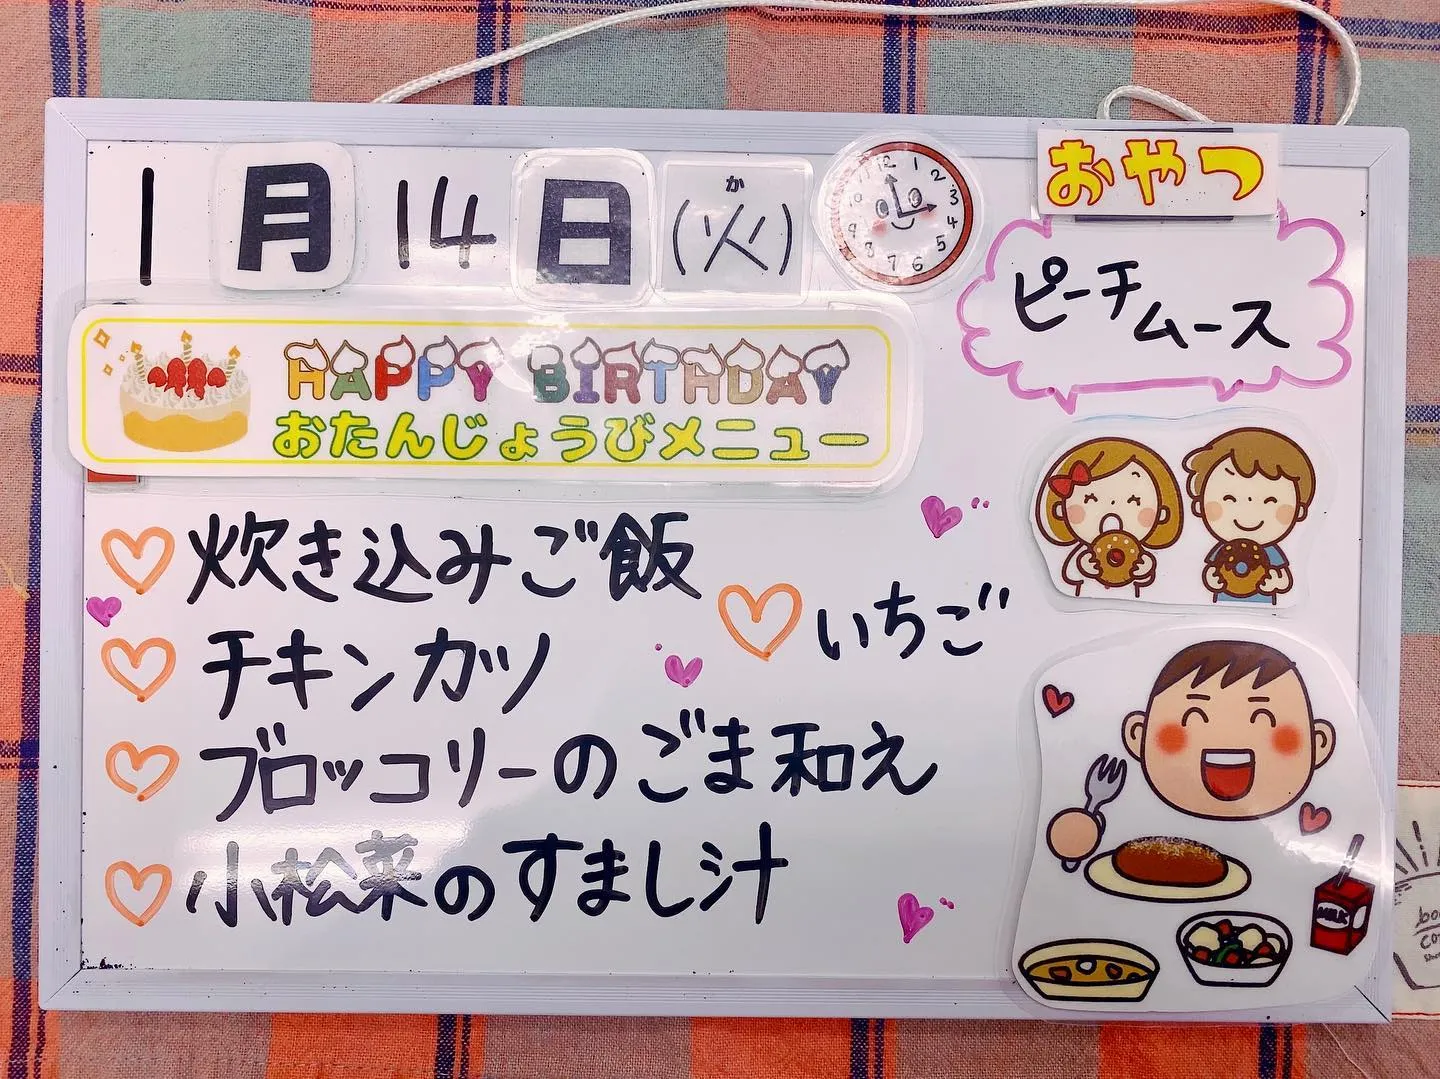 1月14日(火)
か
12 1 2 3 4 5 6 7 8 9 10
おやつ
ピーチムース
HAPPY BIRTHDAY
おたんじょうびメニュー
炊き込みご飯
いちご
チキンカツ
ブロッコリーのごま和え
小松菜のすまし汁
MILK